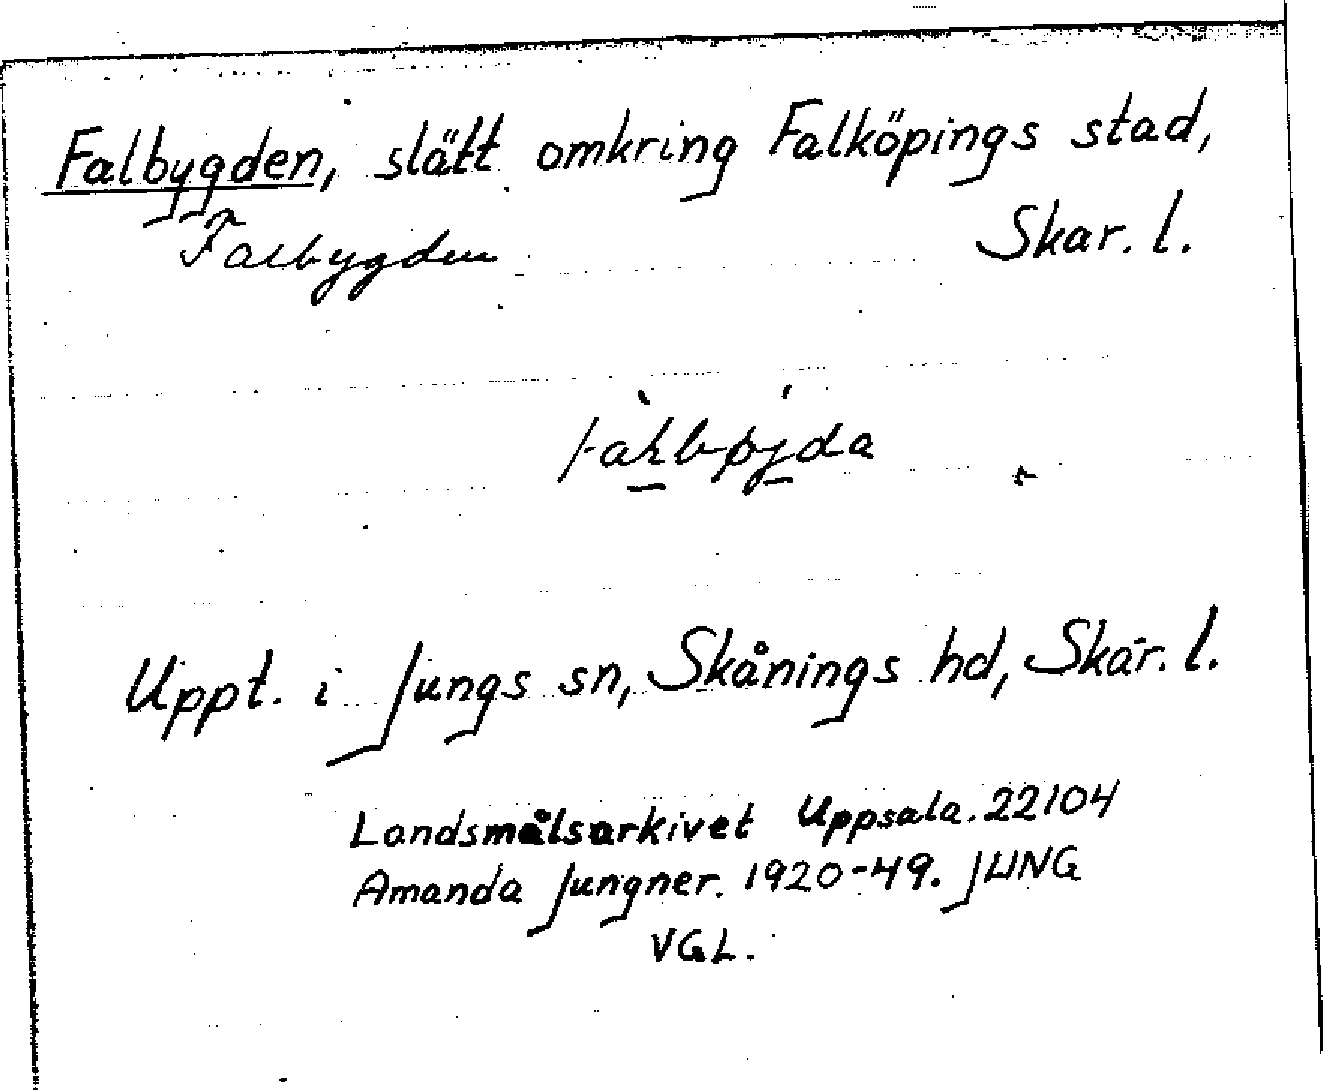 Falbygden, slätt omkring Falköpings stad,
Falbygden Skar. l.
Uppt. i Jungs sn, Skånings hd, Skar. l.
Landsmålsarkivet Uppsala. 22104
Amanda Jungner. 1920-49. JUNG
VGL.